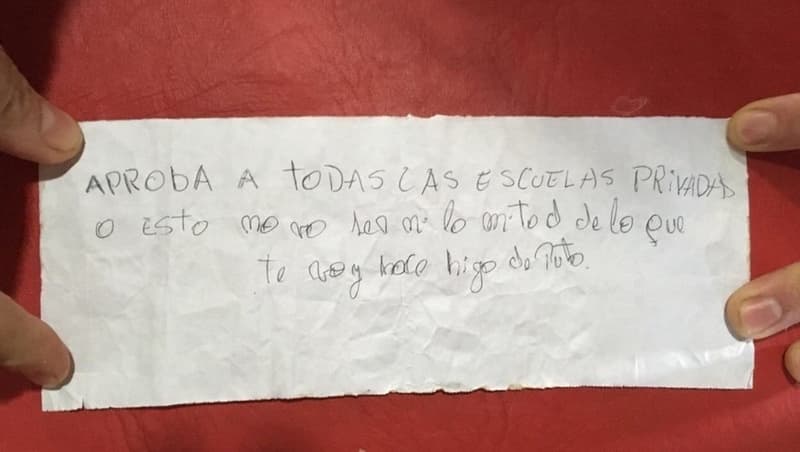 APROBA A TODAS LAS ESCUELAS PRIVADAS
O ESTO NO VO SER NI LO MITOD de lo que
te voy hace higo de Puto.